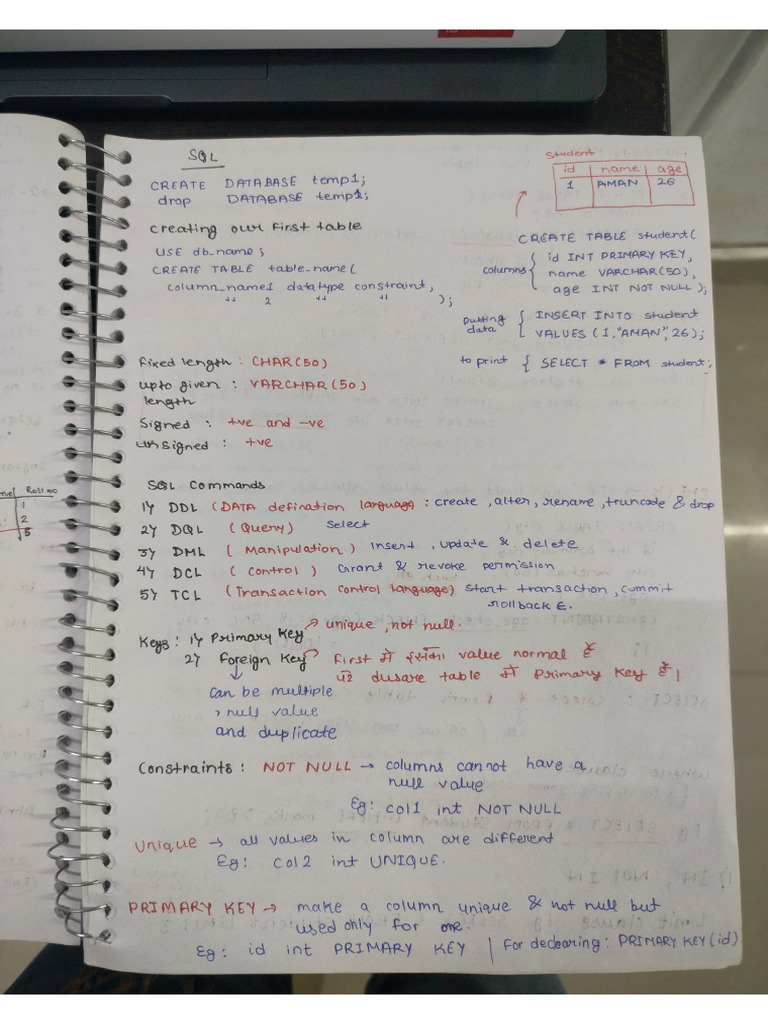 SQL
CREATE DATABASE temp1;
drop DATABASE temp1;
creating our first table
USE db_name;
CREATE TABLE table_name(
column_name1 datatype constraint,
" 2 " "
);
student
id name age
1 AMAN 26
CREATE TABLE student(
columns { id INT PRIMARY KEY,
name VARCHAR(50),
age INT NOT NULL);
putting data { INSERT INTO student
VALUES (1,"AMAN",26);
to print { SELECT * FROM student;
fixed length : CHAR(50)
upto given : VARCHAR(50)
length
Signed : +ve and -ve
unsigned : +ve
SQL Commands
1) DDL (DATA defination language) : create, alter, rename, truncade & drop
2) DQL (Query) select
3) DML (Manipulation) insert, update & delete
4) DCL (control) Grant & revoke permission
5) TCL (Transaction control language) start transaction, commit
rollback E.
Keys : 1) Primary Key → unique, not null.
2) Foreign Key → first में इसका value normal है
पर dusare table में primary key है।
↓
can be multiple
, null value
and duplicate
Constraints : NOT NULL → columns cannot have a
null value
Eg: col1 int NOT NULL
Unique → all values in column are different
Eg: col2 int UNIQUE.
PRIMARY KEY → make a column unique & not null but
used only for one.
Eg: id int PRIMARY KEY | For declearing: PRIMARY KEY(id)
Roll no
1
2
5